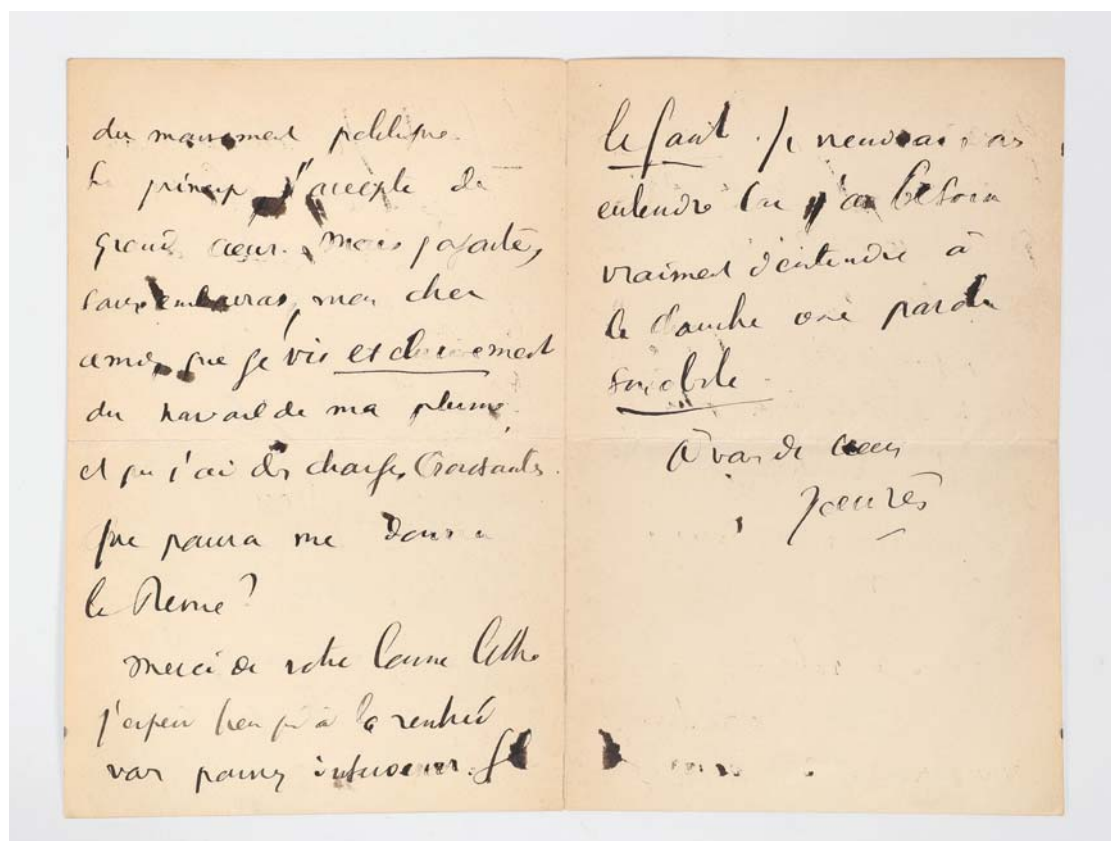 du mouvement politique.
En principe j'accepte de
grand cœur. Mais j'ajoute,
sans embarras, mon cher
ami, que je vis exclusivement
du travail de ma plume,
et que j'ai des charges croissantes.
Que pourra me donner
la Revue?
Merci de votre bonne lettre
j'espère bien qu'à la rentrée
vous pourrez intervenir. Il
le faut. Je viendrai vous
entendre car j'ai besoin
vraiment d'entendre à
la Chambre une parole
À vous de cœur
Jaurès